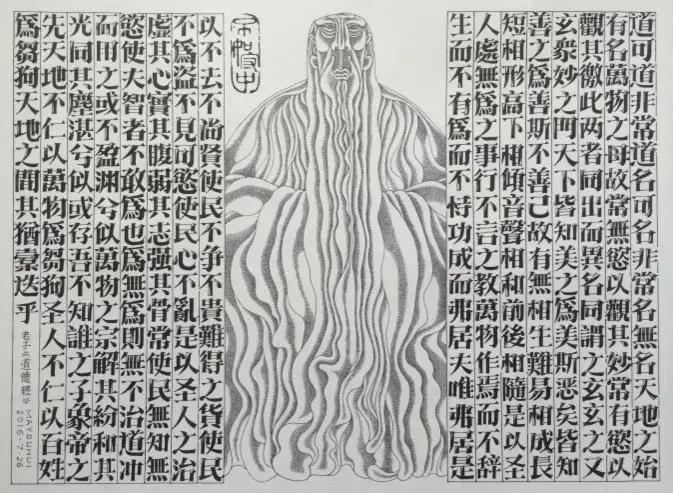 道可道非常道名可名非常名無名天地之始
有名萬物之母故常無慾以觀其妙常有慾以
觀其徼此两者同出而異名同謂之玄玄之又
玄衆妙之門天下皆知美之爲美斯恶矣皆知
善之爲善斯不善己故有無相生難易相成長
短相形高下相傾音聲相和前後相隨是以圣
人處無爲之事行不言之教萬物作焉而不辞
生而不有爲而不恃功成而弗居夫唯弗居是
以不去不尚賢使民不争不貴難得之货使民
不爲盗不見可慾使民心不亂是以圣人之治
虚其心實其腹弱其志强其骨常使民無知無
慾使夫智者不敢爲也爲無爲則無不治道冲
而田之或不盈渊兮似萬物之宗解其紛和其
光同其塵湛兮似或存吾不知誰之子象帝之
先天地不仁以萬物爲芻狗圣人不仁以百姓
爲芻狗天地之間其猶橐迭乎
老子《道德經》
MAYOUHUI
2016.7.26